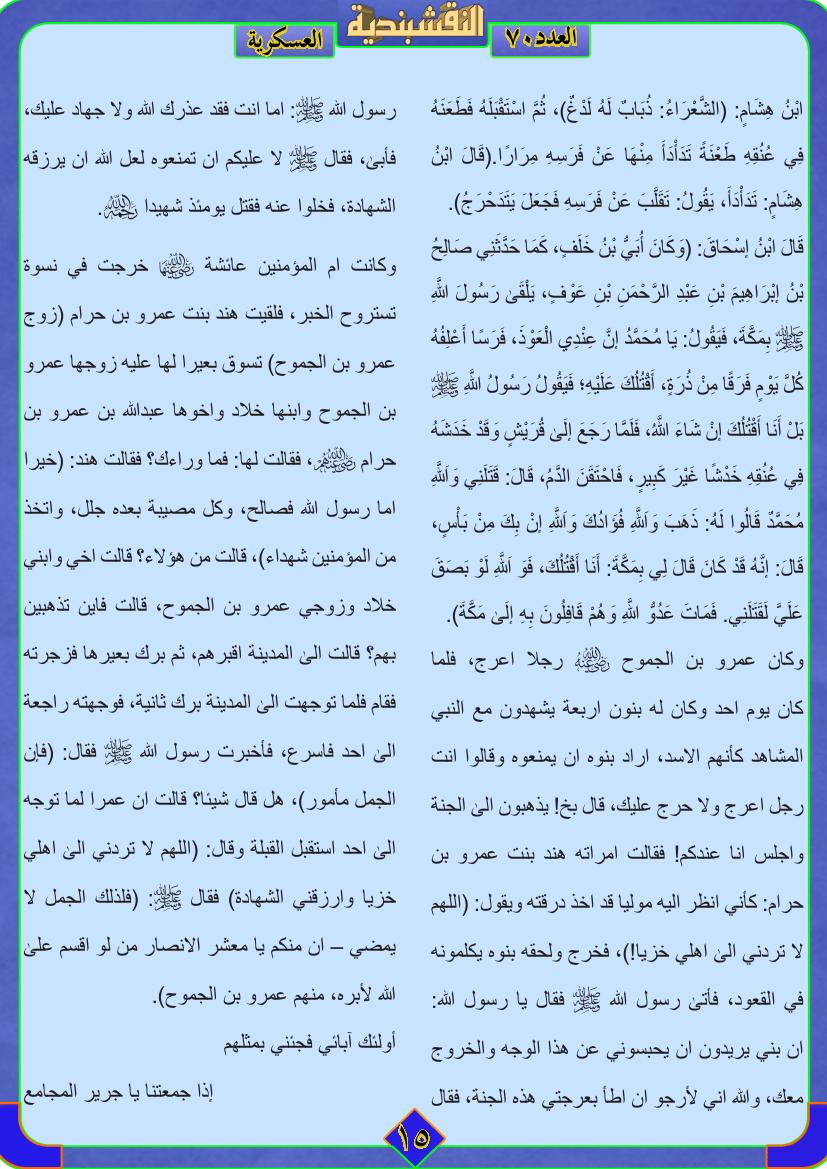 العدد ٧٠
النقشبندية
العسكرية
ابْنُ هِشَامٍ: (الشَّعْرَاءُ: ذُبَابٌ لَهُ لَدْغٌ)، ثُمَّ اسْتَقْبَلَهُ فَطَعَنَهُ
فِي عُنُقِهِ طَعْنَةً تَدَأْدَأَ مِنْهَا عَنْ فَرَسِهِ مِرَارًا.(قَالَ ابْنُ
هِشَامٍ: تَدَأْدَأَ، يَقُولُ: تَقَلَّبَ عَنْ فَرَسِهِ فَجَعَلَ يَتَدَحْرَجُ).
قَالَ ابْنُ إسْحَاقَ: (وَكَانَ أُبَيُّ بْنُ خَلَفٍ، كَمَا حَدَّثَنِي صَالِحُ
بْنُ إبْرَاهِيمَ بْنِ عَبْدِ الرَّحْمَنِ بْنِ عَوْفٍ، يَلْقَىٰ رَسُولَ اللَّهِ
ﷺ بِمَكَّةَ، فَيَقُولُ: يَا مُحَمَّدُ إنَّ عِنْدِي الْعَوْذَ، فَرَسًا أَعْلِفُهُ
كُلَّ يَوْمٍ فَرَقًا مِنْ ذُرَةٍ، أَقْتُلُكَ عَلَيْهِ؛ فَيَقُولُ رَسُولُ اللَّهِ ﷺ
بَلْ أَنَا أَقْتُلُكَ إنْ شَاءَ اللَّهُ، فَلَمَّا رَجَعَ إلَىٰ قُرَيْشٍ وَقَدْ خَدَشَهُ
فِي عُنُقِهِ خَدْشًا غَيْرَ كَبِيرٍ، فَاحْتَقَنَ الدَّمُ، قَالَ: قَتَلَنِي وَاللَّهِ
مُحَمَّدٌ قَالُوا لَهُ: ذَهَبَ وَاللَّهِ فُؤَادُكَ وَاللَّهِ إنْ بِكَ مِنْ بَأْسٍ،
قَالَ: إنَّهُ قَدْ كَانَ قَالَ لِي بِمَكَّةَ: أَنَا أَقْتُلُكَ، فَوَ اللَّهِ لَوْ بَصَقَ
عَلَيَّ لَقَتَلَنِي. فَمَاتَ عَدُوُّ اللَّهِ وَهُمْ قَافِلُونَ بِهِ إلَىٰ مَكَّةَ).
وكان عمرو بن الجموح رضي الله عنه رجلا اعرج، فلما
كان يوم احد وكان له بنون اربعة يشهدون مع النبي
المشاهد كأنهم الاسد، اراد بنوه ان يمنعوه وقالوا انت
رجل اعرج ولا حرج عليك، قال بخ! يذهبون الىٰ الجنة
واجلس انا عندكم! فقالت امراته هند بنت عمرو بن
حرام: كأني انظر اليه موليا قد اخذ درقته ويقول: (اللهم
لا تردني الىٰ اهلي خزيا!)، فخرج ولحقه بنوه يكلمونه
في القعود، فأتىٰ رسول الله ﷺ فقال يا رسول الله:
ان بني يريدون ان يحبسوني عن هذا الوجه والخروج
معك، والله اني لأرجو ان اطأ بعرجتي هذه الجنة، فقال
رسول الله ﷺ: اما انت فقد عذرك الله ولا جهاد عليك،
فأبىٰ، فقال ﷺ لا عليكم ان تمنعوه لعل الله ان يرزقه
الشهادة، فخلوا عنه فقتل يومئذ شهيدا رحمه الله.
وكانت ام المؤمنين عائشة رضي الله عنها خرجت في نسوة
تستروح الخبر، فلقيت هند بنت عمرو بن حرام (زوج
عمرو بن الجموح) تسوق بعيرا لها عليه زوجها عمرو
بن الجموح وابنها خلاد واخوها عبدالله بن عمرو بن
حرام رضي الله عنهم، فقالت لها: فما وراءك؟ فقالت هند: (خيرا
اما رسول الله فصالح، وكل مصيبة بعده جلل، واتخذ
من المؤمنين شهداء)، قالت من هؤلاء؟ قالت اخي وابني
خلاد وزوجي عمرو بن الجموح، قالت فاين تذهبين
بهم؟ قالت الىٰ المدينة اقبرهم، ثم برك بعيرها فزجرته
فقام فلما توجهت الىٰ المدينة برك ثانية، فوجهته راجعة
الىٰ احد فاسرع، فأخبرت رسول الله ﷺ فقال: (فإن
الجمل مأمور)، هل قال شيئا؟ قالت ان عمرا لما توجه
الىٰ احد استقبل القبلة وقال: (اللهم لا تردني الىٰ اهلي
خزيا وارزقني الشهادة) فقال ﷺ: (فلذلك الجمل لا
يمضي – ان منكم يا معشر الانصار من لو اقسم علىٰ
الله لأبره، منهم عمرو بن الجموح).
أولئك آبائي فجئني بمثلهم
إذا جمعتنا يا جرير المجامع
١٥